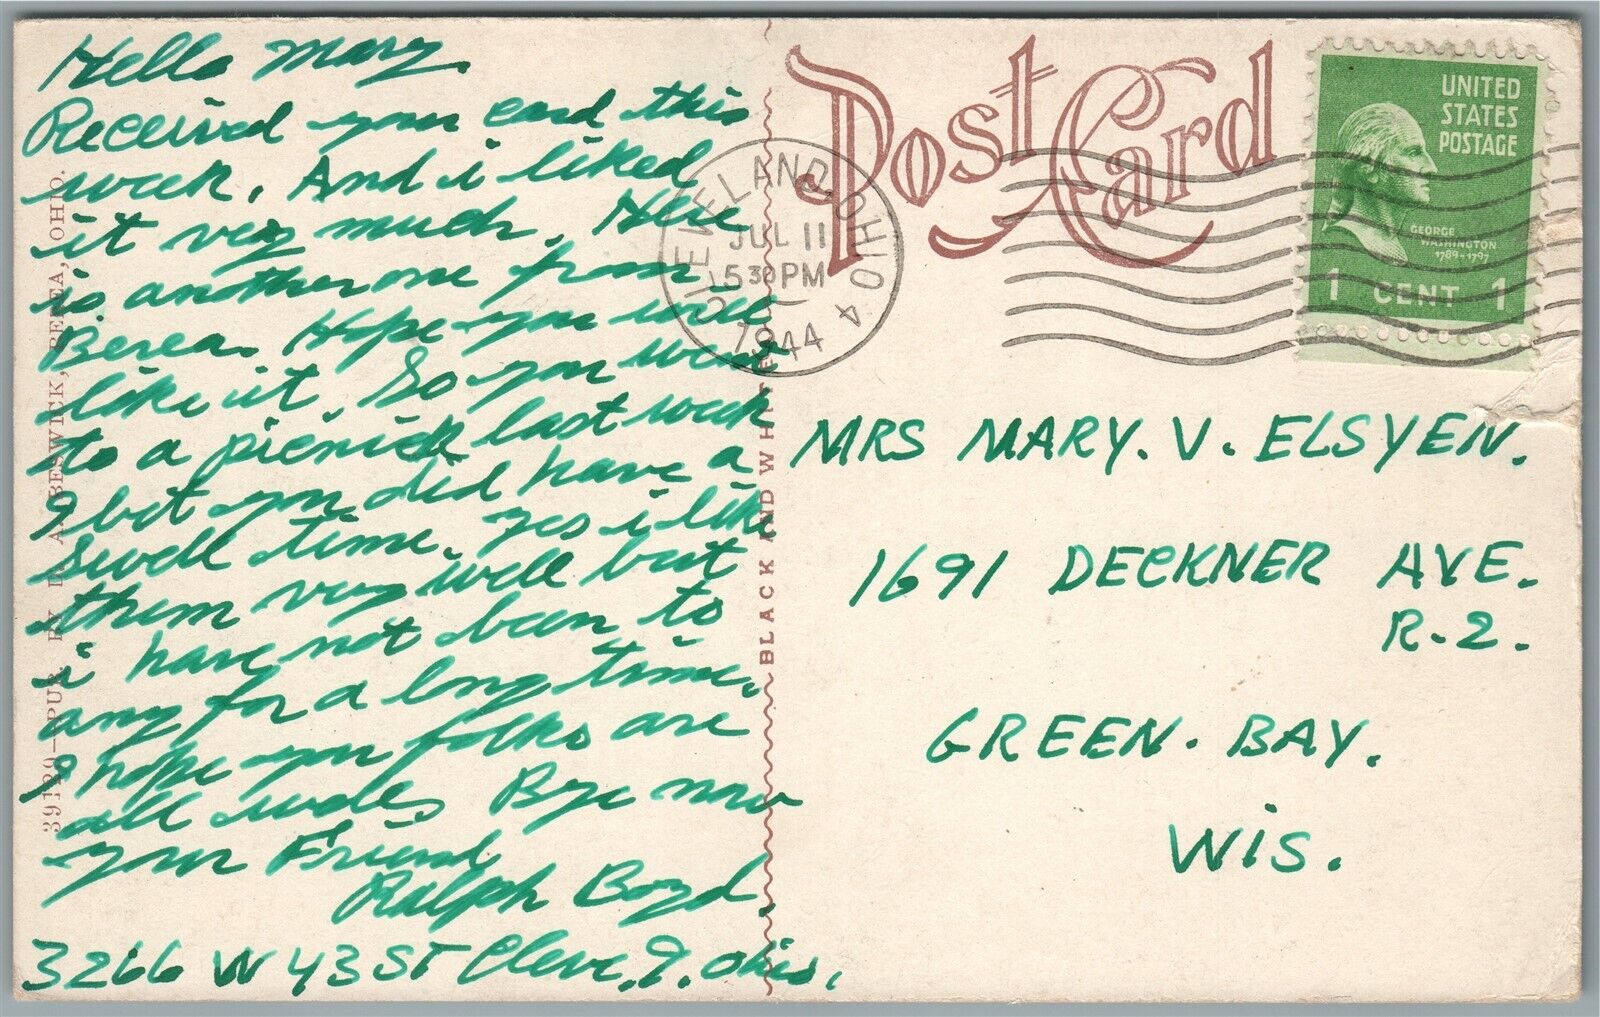 Hello Mary.
Received your card this
week. And i liked
it very much. Here
is another one from
Berea. Hope you will
like it. So you went
to a picnick last week
I bet you did have a
swell time. Yes i like
them very well but
i have not been to
any for a long time.
I hope you folks are
all well. Bye now
your Friend
Ralph Boyd.
3266 W 43 ST Cleve, 9. Ohio.
39120—PUB. BY D. A. BESWICK, BEREA, OHIO.
BLACK AND WHITE
Post Card
CLEVELAND OHIO 4
JUL 11
5 30 PM
1944
UNITED
STATES
POSTAGE
GEORGE
WASHINGTON
1789-1797
1 CENT 1
MRS MARY. V. ELSYEN.
1691 DECKNER AVE.
R-2.
GREEN. BAY.
WIS.